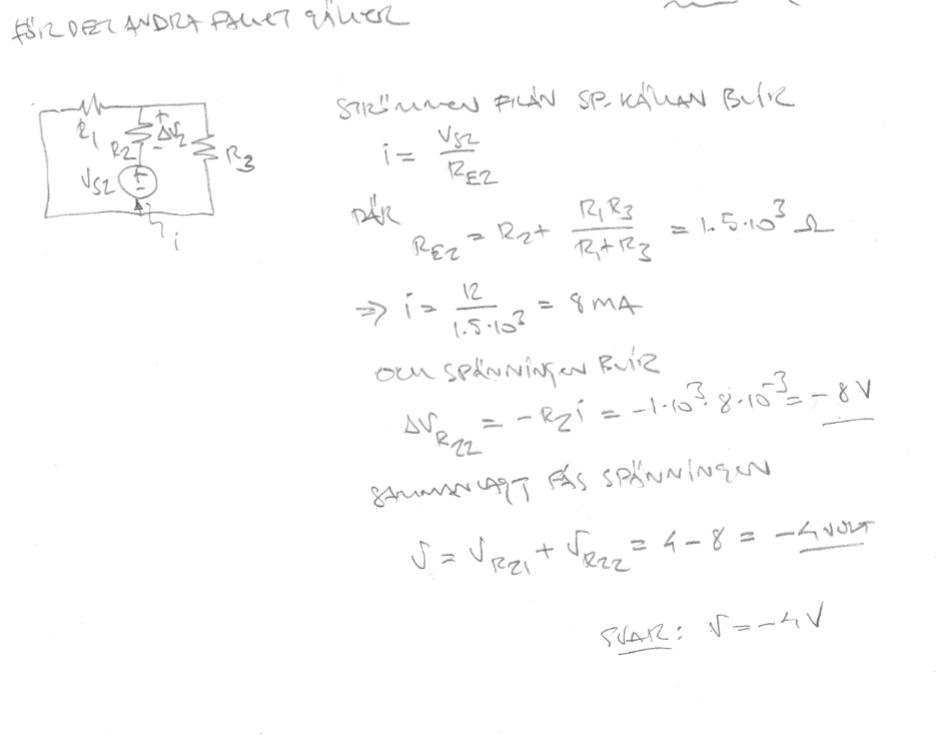 FÖR DET ANDRA FALLET GÄLLER
R1
R2
ΔV2
+
-
R3
VS2
i
STRÖMMEN FRÅN SP.KÄLLAN BLIR
i = VS2 / RE2
DÄR
RE2 = R2 + R1R3 / R1+R3 = 1.5·10³ Ω
⇒ i = 12 / 1.5·10³ = 8 mA
OCH SPÄNNINGEN BLIR
ΔVR22 = -R2i = -1·10³·8·10⁻³ = -8 V
SAMMANLAGT FÅS SPÄNNINGEN
V = VR21 + VR22 = 4 - 8 = -4 VOLT
SVAR: V = -4V